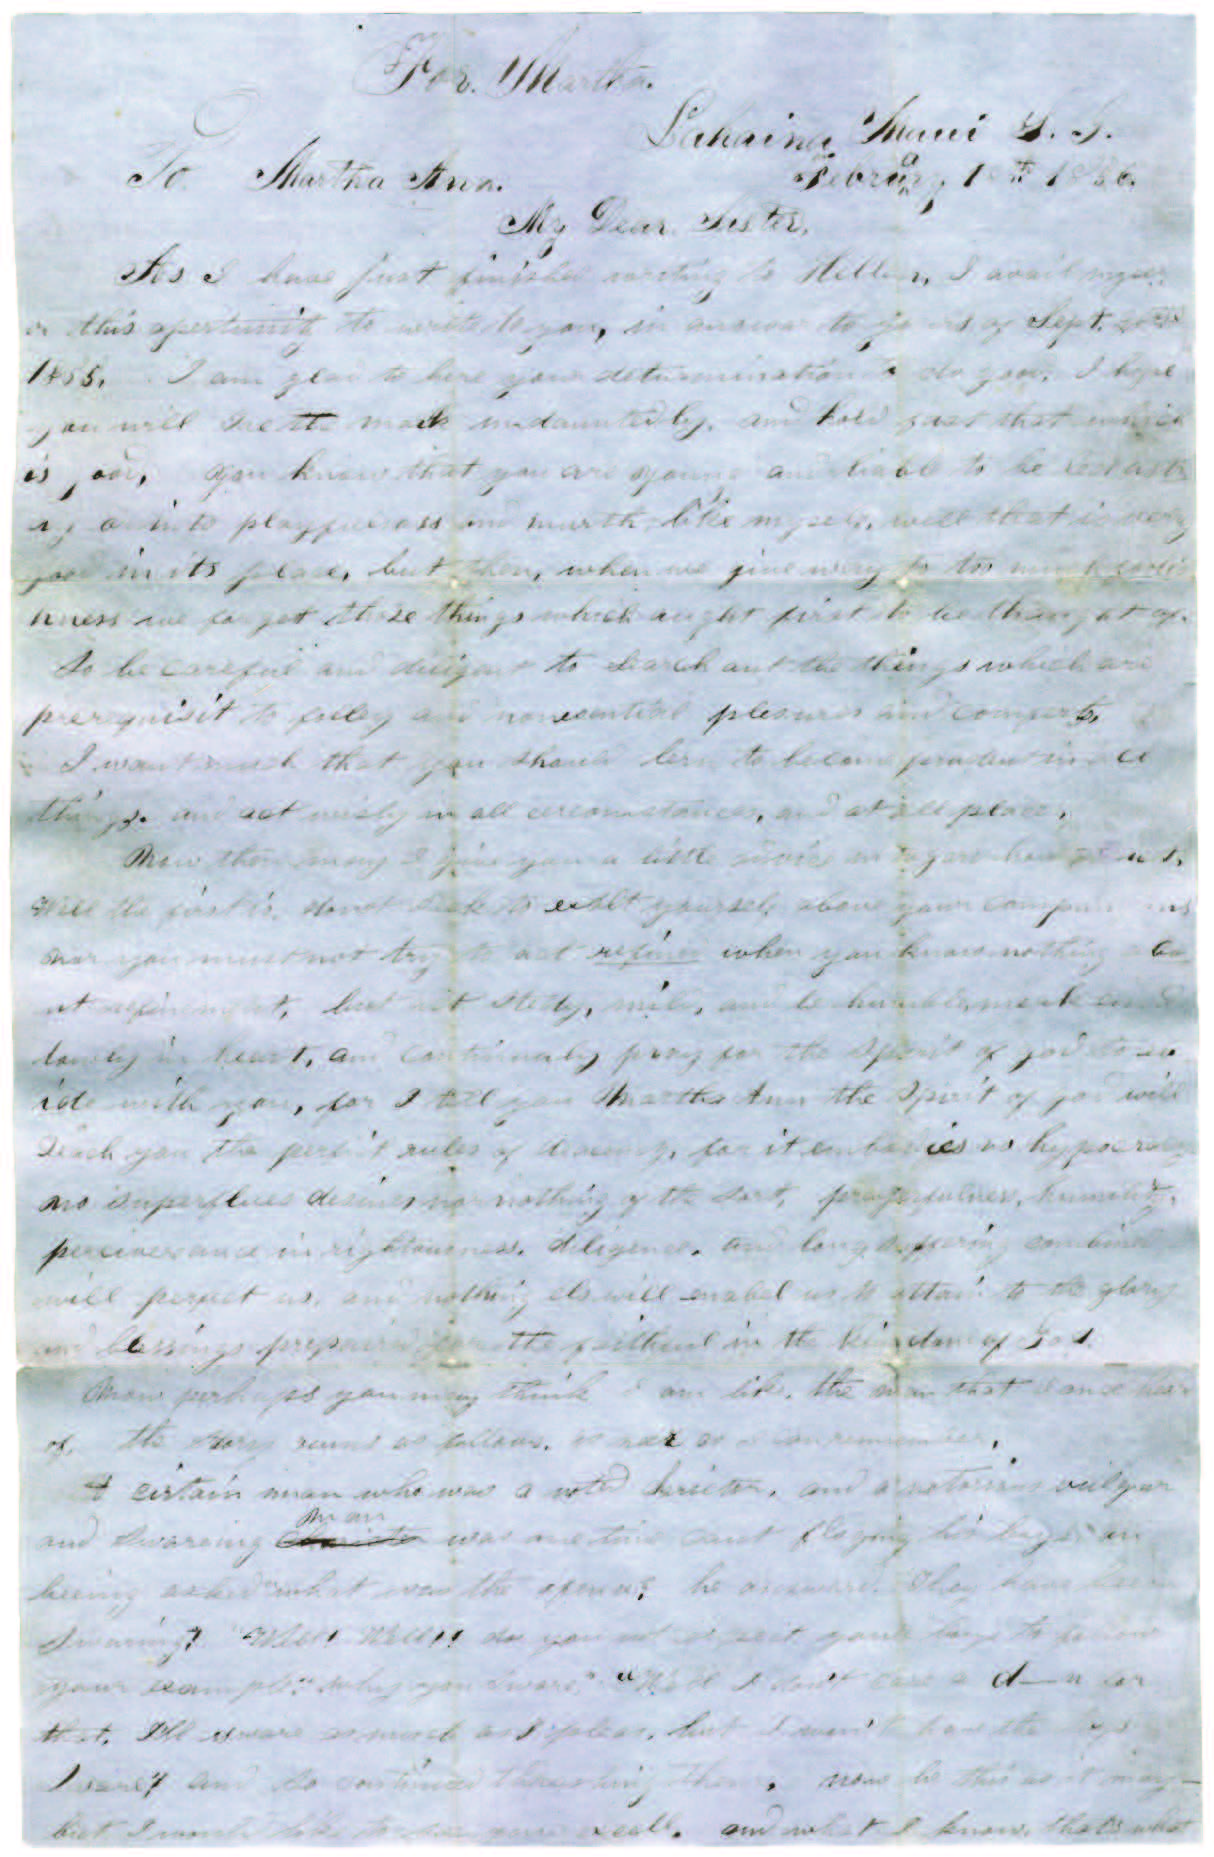 For. Martha.
Lahaina Maui S. I.
To Martha Ann. Febraury 18
My Dear Sister,
As I have just finished writing to Hellen, I avail myself
of this opertunity to write to you, in answar to yours of Sept.
1855. I am glad to here your determination to do good, I hope
you will toe the mark undauntedly, and hold fast that which
is good, you know that you are young and liable to be led
or into playfulness and murth like myself, well that is very
good in its place, but then, when we give way to too much
we forget those things which aught first to be thaught of.
So be careful and diligent to search out the things which are
prerequisit to folley and nonesential plesures and comforts,
I want much that you should lern to become prudent in all
things. and act wisely in all circumstances, and at all places,
Now then may I give you a little advice in regard how to act.
Well the first is, do not seek to exalt yourself above your companions
nor you must not try to act refined when you know nothing abo
ut refinement, but act stedy, mild, and be humble, meek and
lowly in heart, and continualy pray for the Spirit of god to
with you, for I tell you Martha Ann the Spirit of god will
teach you the perfect rules of decency, for it embodies no hypocrisy
no superflues desires nor nothing of the sort, prayerfulness, humility,
perciverance in rightousness, diligence, and long suffering combined
will perfect us, and nothing els will enabel us to attain to the glory
and blessings prepaired for the faithful in the Kingdom of God.
Now perhaps you may think I am like, the man that I once hear
of, the story runs as follows, as near as I can remember,
A cirtain man who was a noted and a notorious vulgar
and swareing man was one time caut floging his boys on
beeing asked "what was the he answared. They have been
swaring! "Well! Well!! do you not expect your boys to follow
your example" why you sware." "Well I don't care a d—n for
that, I'll sware as much as I pleas, but I won't have the boys
sware" and so continued thrashing them, now be this as it may—
but I would like to see you excell, and what I know, that's what